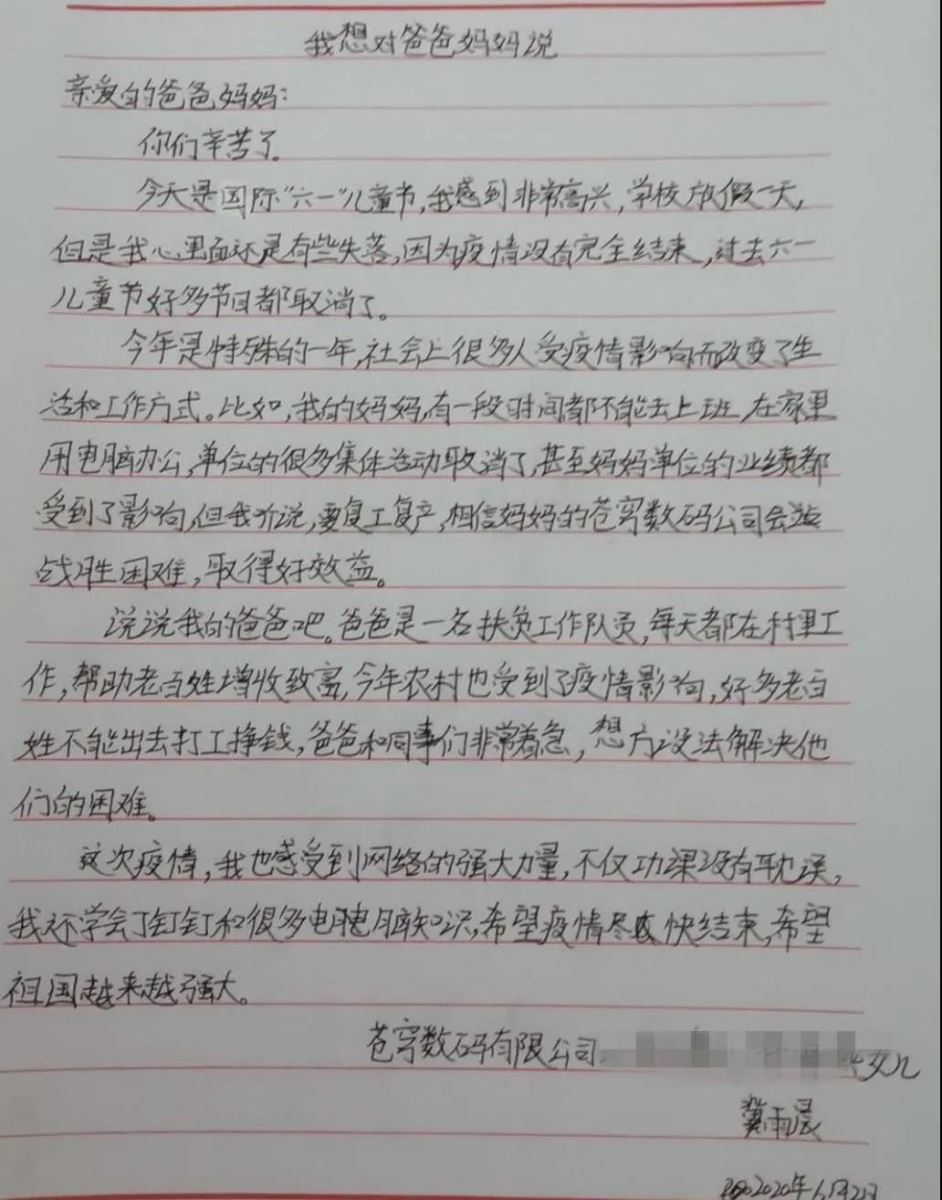 我想对爸爸妈妈说
亲爱的爸爸妈妈:
你们辛苦了。
今天是国际“六一”儿童节,我感到非常高兴,学校放假一天,
但是我心里面还是有些失落,因为疫情没有完全结束,过去六一
儿童节好多节目都取消了。
今年是特殊的一年,社会上很多人受疫情影响而改变了生
活和工作方式。比如,我的妈妈,有一段时间都不能去上班,在家里
用电脑办公,单位的很多集体活动取消了,甚至妈妈单位的业绩都
受到了影响,但我听说,要复工复产,相信妈妈的苍穹数码公司会
战胜困难,取得好效益。
说说我的爸爸吧。爸爸是一名扶贫工作队员,每天都在村里工
作,帮助老百姓增收致富,今年农村也受到了疫情影响,好多老百
姓不能出去打工挣钱,爸爸和同事们非常着急,想方设法解决他
们的困难。
这次疫情,我也感受到网络的强大力量,不仅功课没有耽误,
我还学会了钉钉和很多电脑知识,希望疫情尽快结束,希望
祖国越来越强大。
苍穹数码有限公司 女儿
冀雨晨
2020年6月2日